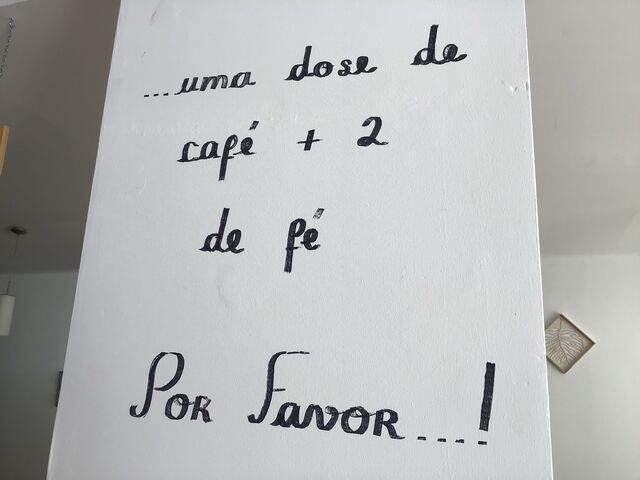 ...uma dose de
café + 2
de fé
Por Favor....!